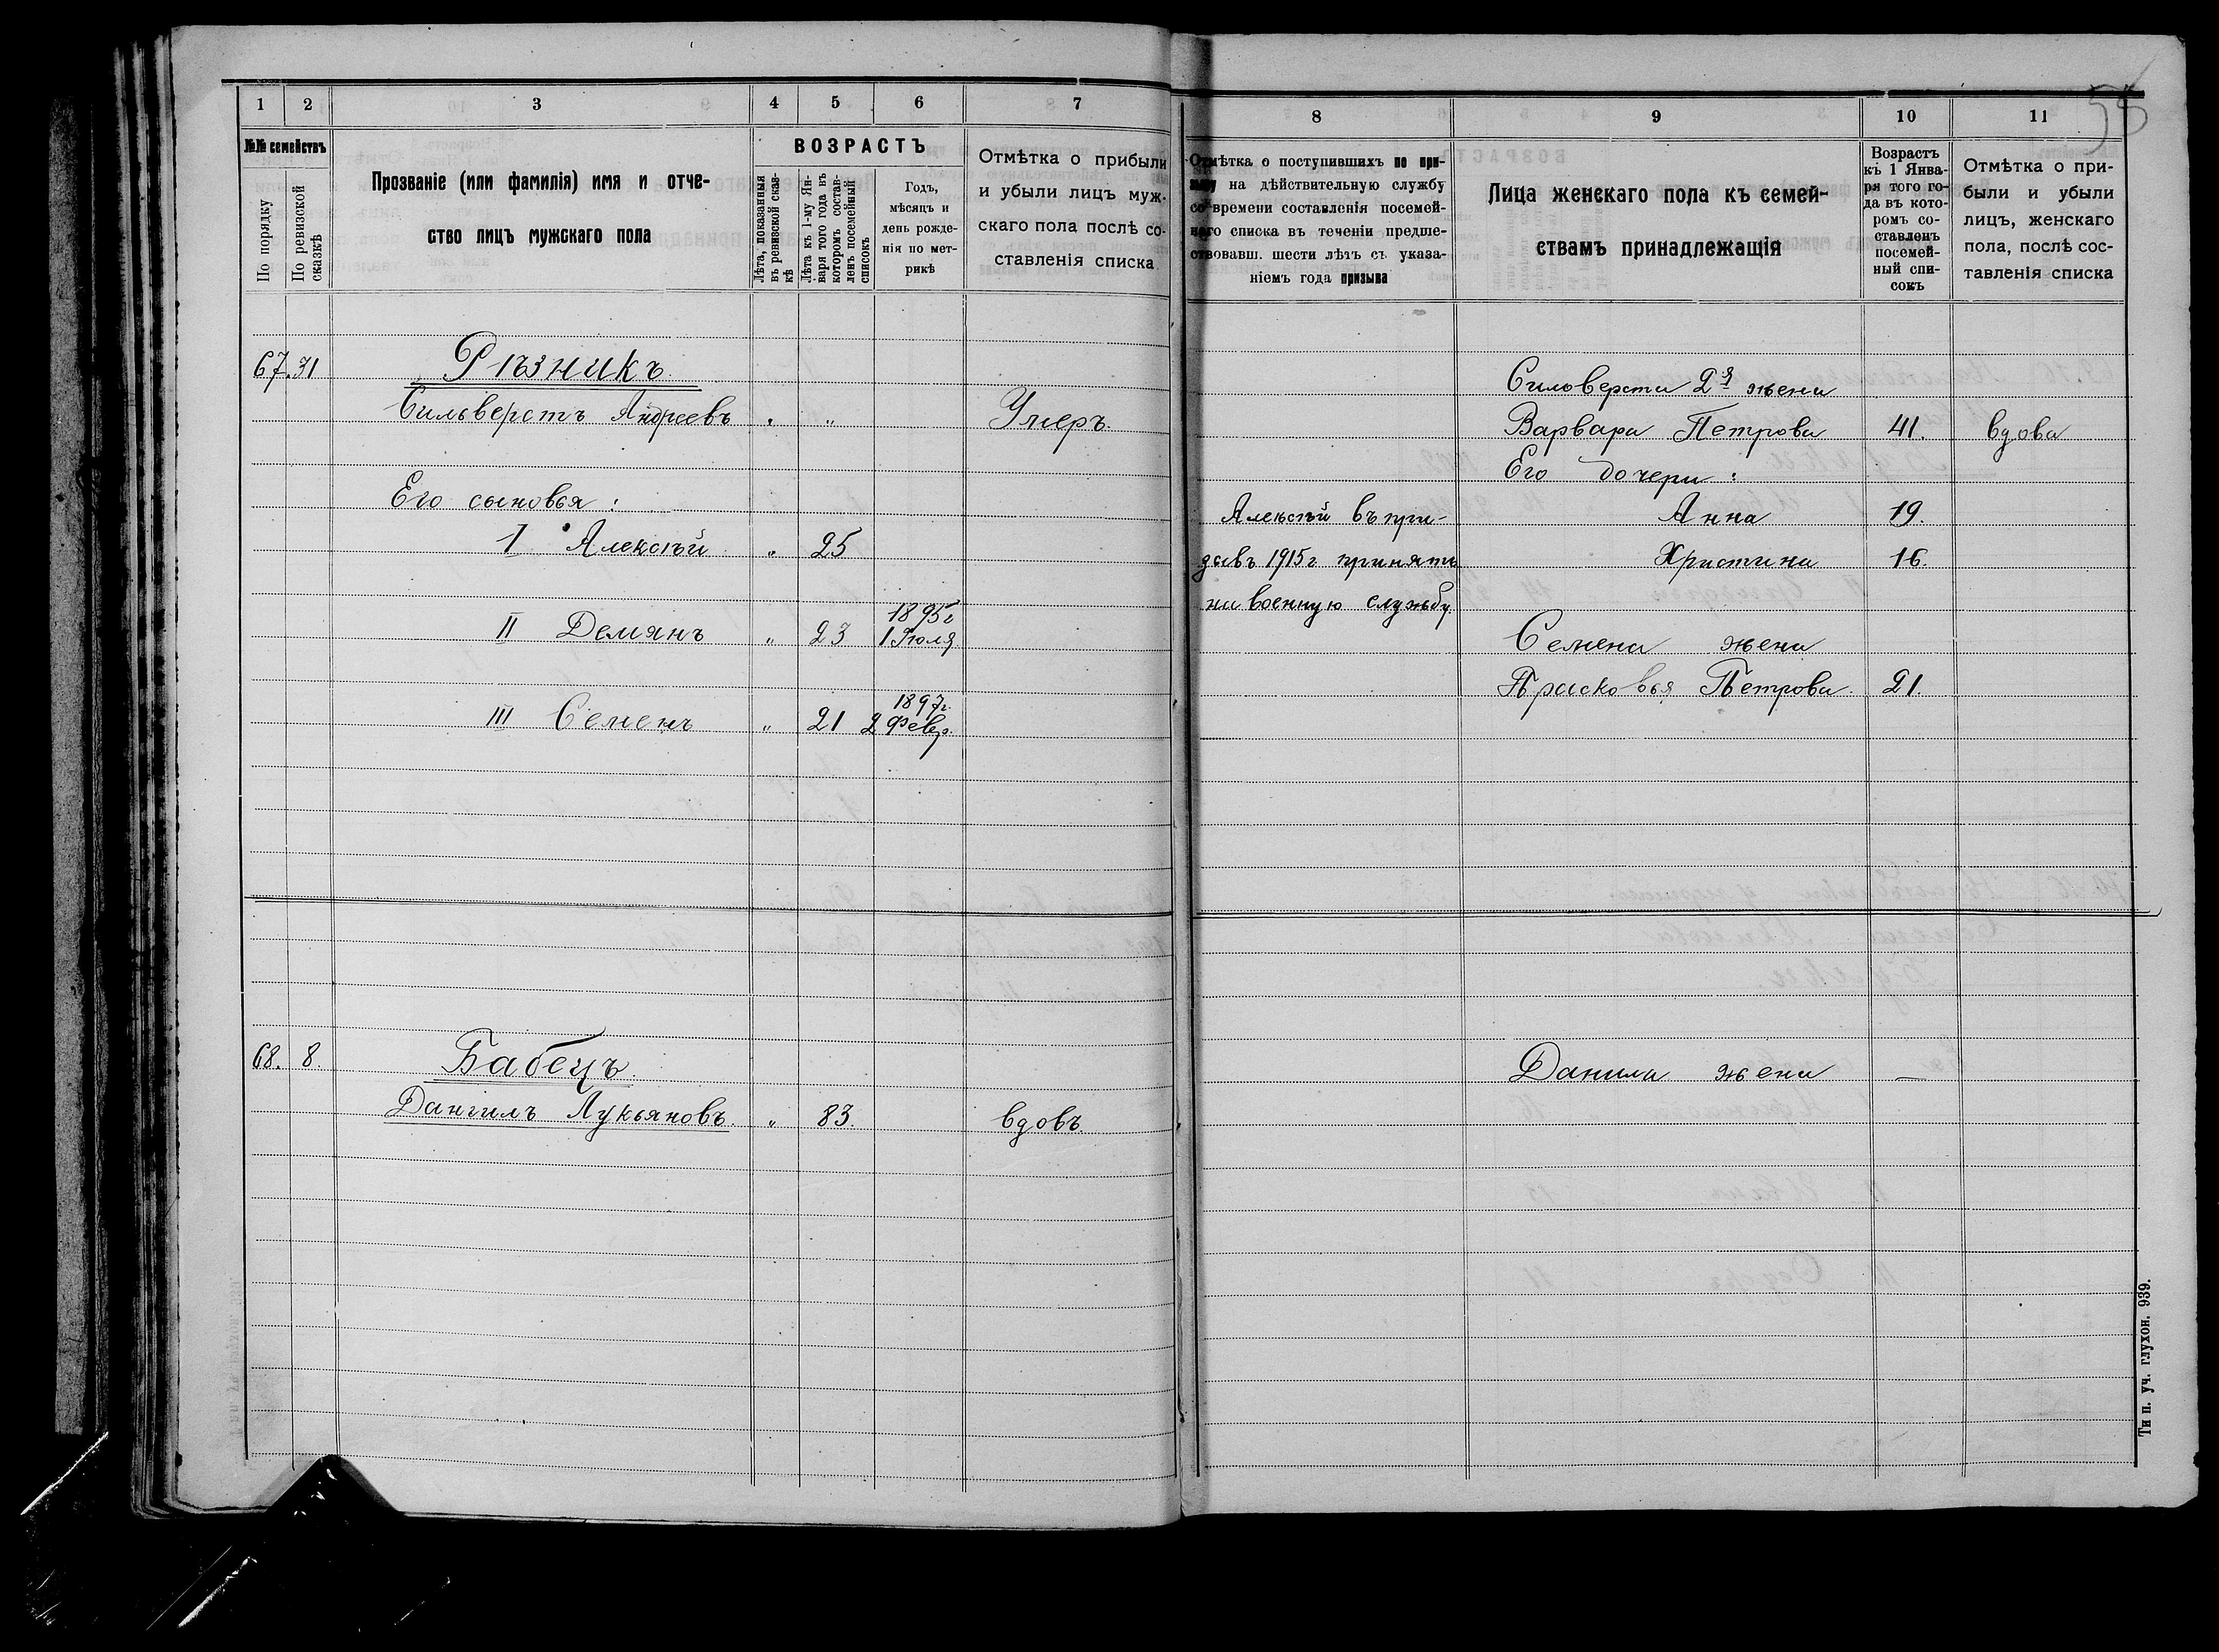 58
1 2 3 4 5 6 7
№№ семействъ
По порядку
По ревизской сказкѣ
Прозваніе (или фамилія) имя и отче-
ство лицъ мужскаго пола
ВОЗРАСТЪ
Лѣта, показанныя
въ ревизской сказ-
кѣ
Лѣта къ 1-му Ян-
варя того года въ
которомъ состав-
ленъ посемейный
списокъ
Годъ,
мѣсяцъ и
день рожде-
нія по мет-
рикѣ
Отмѣтка о прибыли
и убыли лицъ муж-
скаго пола послѣ со-
ставленія списка
67. 31 Рѣзникъ
Сильверстъ Андреевъ „ „ Умеръ.
Его сыновья :
I Алексѣй „ 25
II Демянъ „ 23 1895г 1 Іюля
III Семенъ „ 21 1897г. 2 Февр.
68. 8. Бабецъ.
Даніилъ Лукьяновъ. „ 83. вдовъ
8 9 10 11
Отмѣтка о поступившихъ по при-
зыву на дѣйствительную службу
со времени составленія посемей-
наго списка въ теченіи предше-
ствовавш. шести лѣтъ съ указа-
ніемъ года призыва
Лица женскаго пола къ семей-
ствамъ принадлежащія
Возрастъ
къ 1 Янва-
ря того го-
да въ кото-
ромъ со-
ставленъ
посемей-
ный спи-
сокъ
Отмѣтка о при-
были и убыли
лицъ, женскаго
пола, послѣ сос-
тавленія списка
Силоверста 2я жена
Варвара Петрова 41. вдова
Его дочери :
Алексѣй въ при- Анна 19.
зывъ 1915г принятъ Христина 16.
на военную службу.
Семена жена
Прасковья Петрова. 21.
Данила жена —
Тип. уч. глухон. 939.